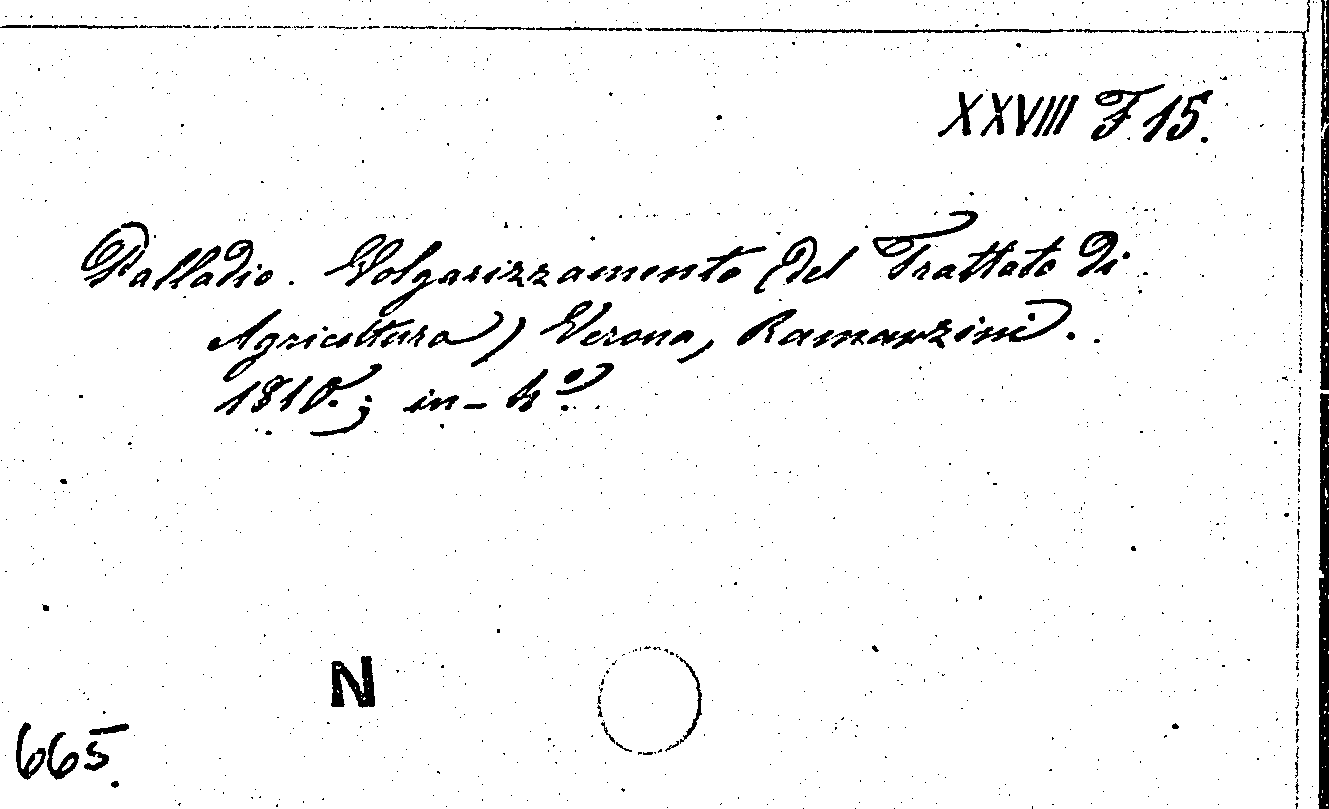 XXVIII F 15.
Palladio. Volgarizzamento (del Trattato di
Agricoltura) Verona, Ramanzini.
1810.; in-4º
N
665.